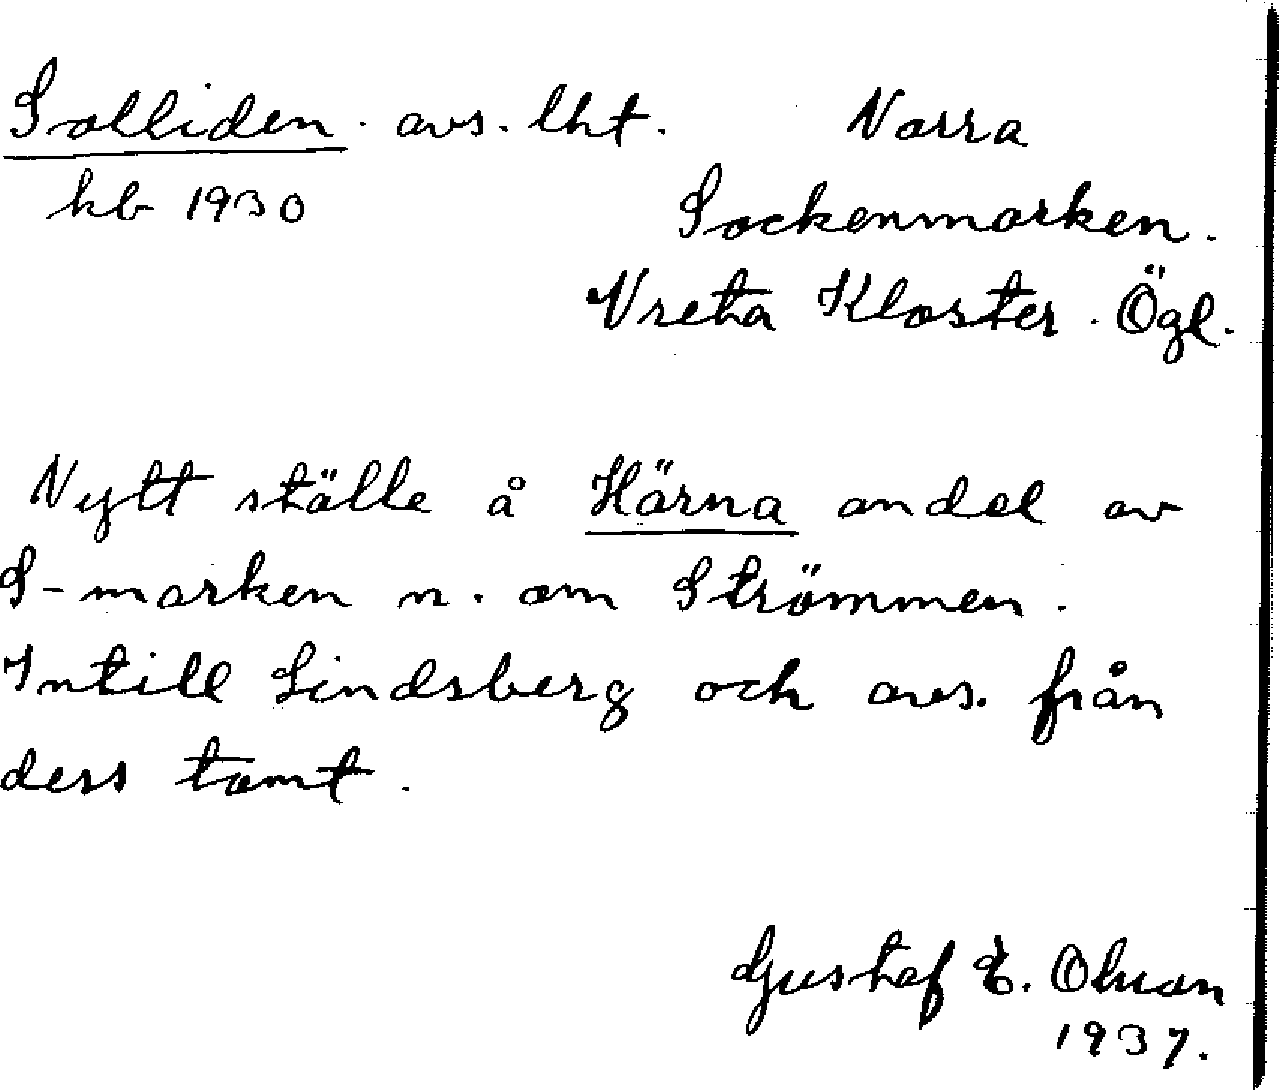 Solliden. avs. lht. Norra
kb 1930 Sockenmarken.
Vreta Kloster. Ögl.
Nytt ställe å Härna andel av
S-marken n. om Strömmen.
Intill Lindsberg och avs. från
dess tomt.
Gustaf E. Olsson
1937.